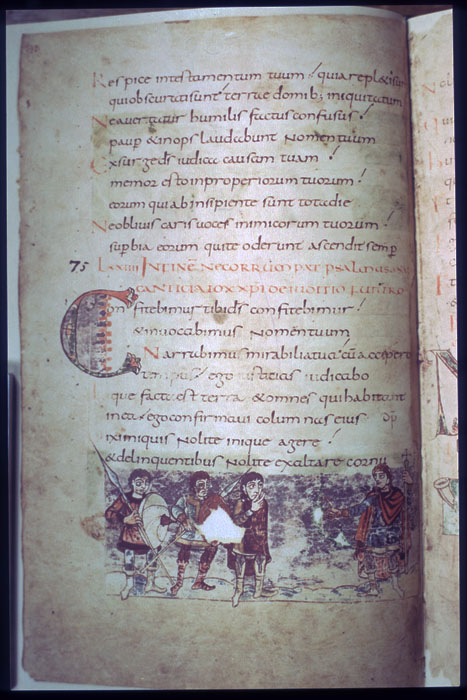 Respice intestamentum tuum! quiarepl&isunt
quiobscuratisunt terrae domib; iniquitatum
Neavertatur humilis factus confusus!
paup & inops laudabunt Nomentuum
Exsurgeds iudica causam tuam!
memor esto inproperiorum tuorum!
eorum quiabinsipiente sunt totadie
Neobliviscaris voces inimicorum tuorum!
supbia eorum quite oderunt ascendit semp
75 LXXIIII IN FINEM NE CORRUMPAT PSALMUS ASAPH
CANTICI
Confitebimus tibids confitebimur!
& invocabimus Nomentuum
Narrabimus mirabiliatua cu accepero
tempus! ego iustitias iudicabo
que facta est terra & omnes qui habitant
inea! ego confirmavi columnas eius
iximiquis Nolite inique agere!
& delinquentibus Nolite exaltare cornu